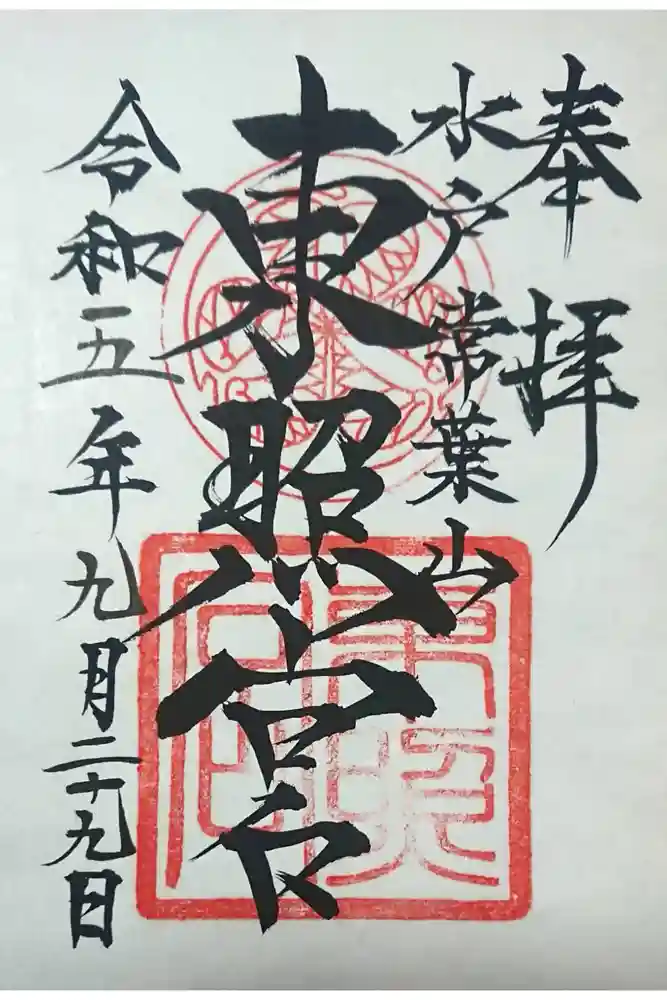 奉拝
水戸常葉山
東照宮
令和五年九月二十九日